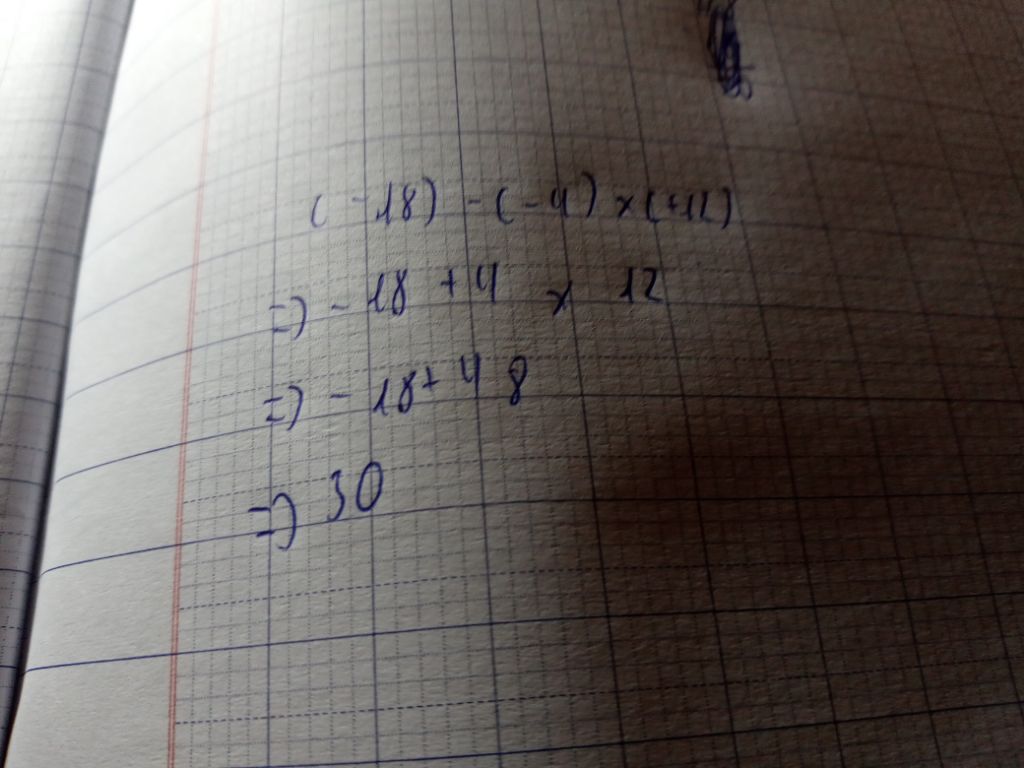 (-18) - (-4) x (+12)
=> - 18 + 4 x 12
=> - 18 + 48
=> 30